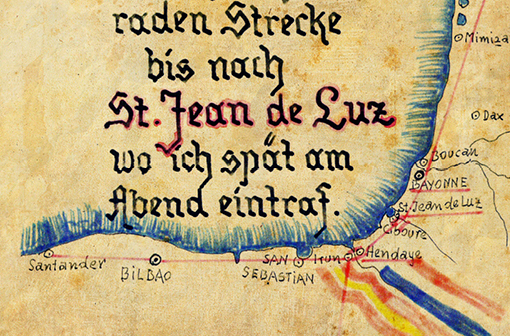 raden Strecke
bis nach
St. Jean de Luz
wo ich spät am
Abend eintraf.
Mimiza
Dax
Boucau
BAYONNE
St Jean de Luz
Ciboure
Hendaye
Irun
SAN
SEBASTIAN
BILBAO
Santander